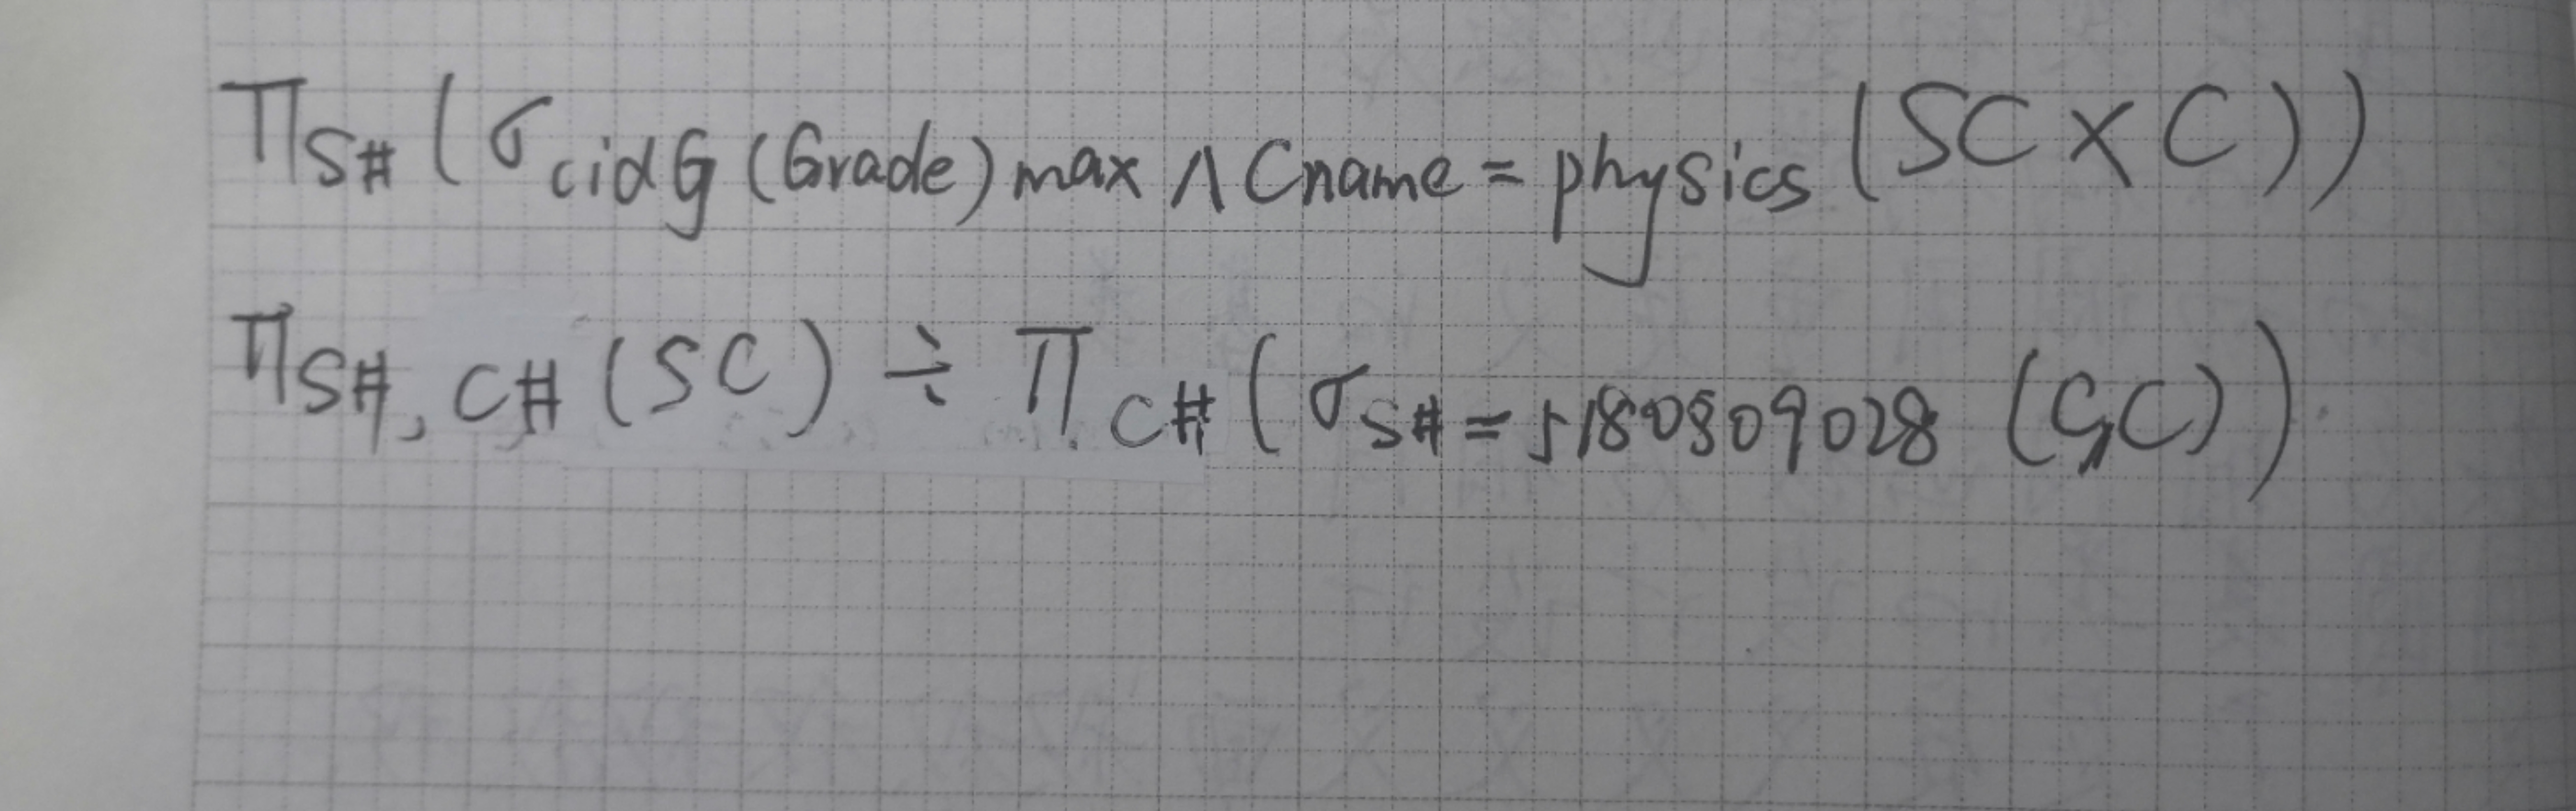 Π S# (σ cid G (Grade) max ∧ Cname = physics (SC × C))
Π S#, C# (SC) ÷ Π C# (σ S# = 5180809028 (SC))